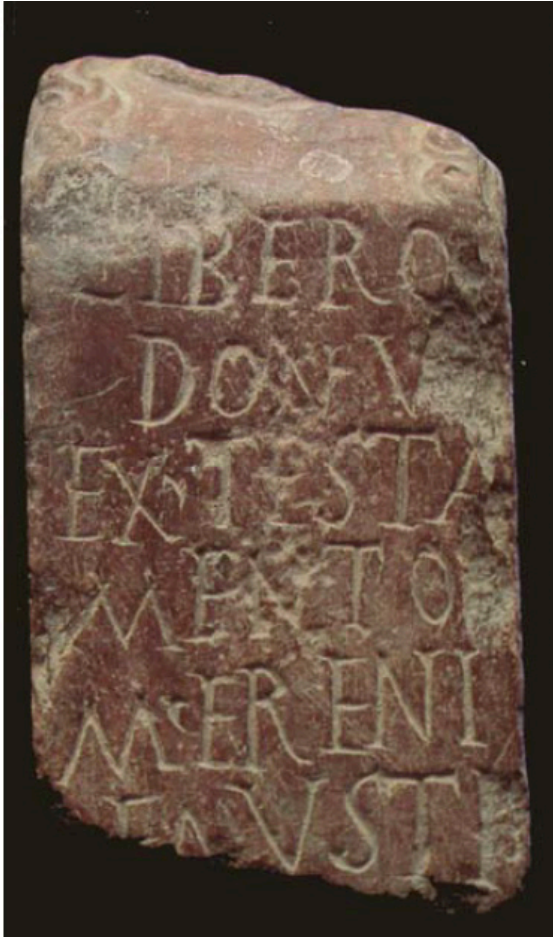 LIBERO
DONV
EX·TESTA
MENTO
M·ERENI
FAVSTI